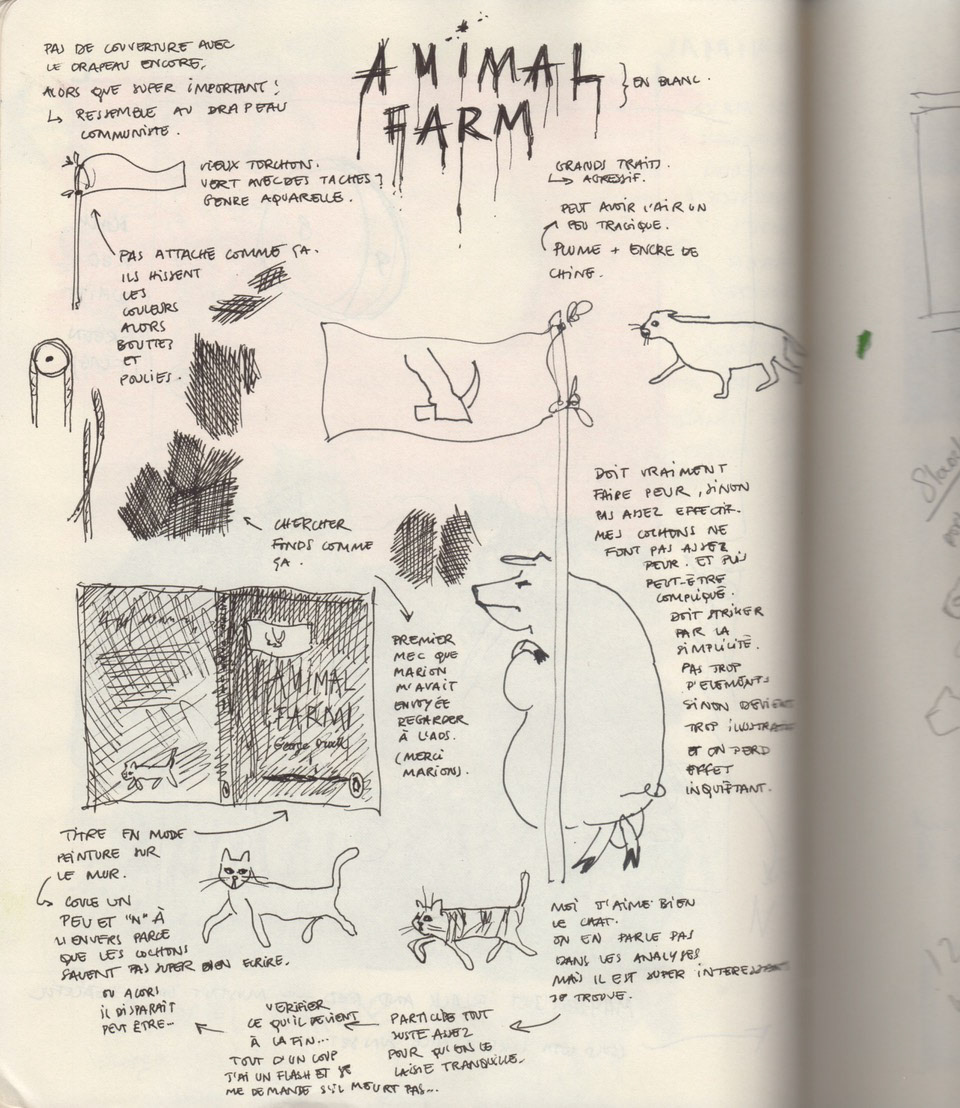 PAS DE COUVERTURE AVEC
LE DRAPEAU ENCORE,
ALORS QUE SUPER IMPORTANT!
RESSEMBLE AU DRAPEAU
COMMUNISTE.
ANIMAL
FARM
EN BLANC.
VIEUX TORCHON.
VERT AVEC DES TACHES?
GENRE AQUARELLE.
GRANDS TRAITS.
AGRESSIF.
PEUT AVOIR L'AIR UN
PEU TRAGIQUE.
PLUME + ENCRE DE
CHINE.
PAS ATTACHÉ COMME ÇA.
ILS HISSENT
LES
COULEURS
ALORS
BOUTTES
ET
POULIES.
CHERCHER
FONDS COMME
ÇA.
DOIT VRAIMENT
FAIRE PEUR, SINON
PAS ASSEZ EFFECTIF.
MES COCHONS NE
FONT PAS ASSEZ
PEUR. ET PUIS
PEUT-ÊTRE
COMPLIQUÉ.
DOIT STRIKER
PAR LA
SIMPLICITÉ.
PAS TROP
D'ELEMENTS
SINON DEVIENT
TROP
ET ON PERD
EFFET
INQUIÉTANT.
PREMIER
MEC QUE
MARION
M'AVAIT
ENVOYÉE
REGARDER
À L'ADS.
(MERCI
MARIONS).
ANIMAL
FARM
George Orwell
TITRE EN MODE
PEINTURE SUR
LE MUR.
COULE UN
PEU ET "N" À
L'ENVERS PARCE
QUE LES COCHONS
SAVENT PAS SUPER BIEN ECRIRE.
MOI J'AIME BIEN
LE CHAT.
ON EN PARLE PAS
DANS LES ANALYSES
MAIS IL EST SUPER
JE TROUVE.
PARTICIPE TOUT
JUSTE ASSEZ
POUR QU'ON LE
LAISSE TRANQUILLE.
VERIFIER
CE QU'IL DEVIENT
À LA FIN...
TOUT D'UN COUP
J'AI UN FLASH ET JE
ME DEMANDE S'IL MEURT PAS...
OU ALORS
IL DISPARAIT
PEUT ÊTRE...